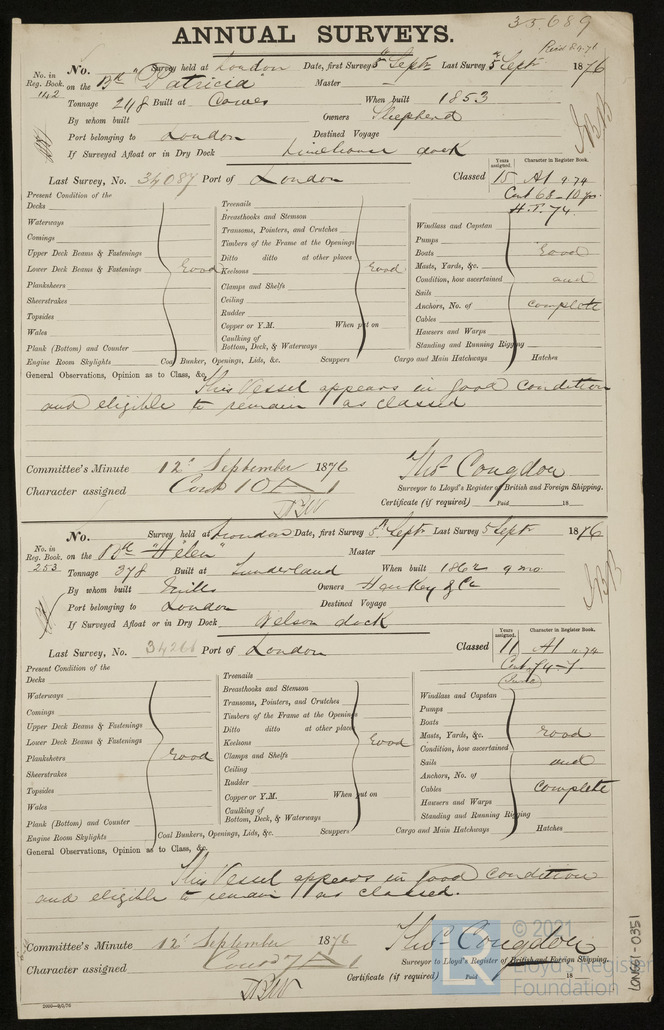 35689
ANNUAL SURVEYS.
Recd 8.9.76
No. Survey held at London Date, first Survey 5th Septr Last Survey 5th Septr 1876
No. in Reg. Book. 1142 on the Bk "Patricia" Master —
Tonnage 248 Built at Cowes When built 1853
By whom built Owners Shepherd
Port belonging to London Destined Voyage
If Surveyed Afloat or in Dry Dock Limehouse dock
Last Survey, No. 34087 Port of London Classed Years assigned. 15 Character in Register Book. A1 9.74
Cont 68-10 yrs
H.T. 74.
Present Condition of the
Decks
Waterways
Comings
Upper Deck Beams & Fastenings
Lower Deck Beams & Fastenings Good
Planksheers
Sheerstrakes
Topsides
Wales
Plank (Bottom) and Counter
Engine Room Skylights
Treenails
Breasthooks and Stemson
Transoms, Pointers, and Crutches
Timbers of the Frame at the Openings
Ditto ditto at other places
Keelsons Good
Clamps and Shelfs
Ceiling
Rudder
Copper or Y.M. When put on
Caulking of Bottom, Deck, & Waterways
Coal Bunker, Openings, Lids, &c. Scuppers
Windlass and Capstan
Pumps
Boats Good
Masts, Yards, &c.
Condition, how ascertained and
Sails
Anchors, No. of complete
Cables
Hawsers and Warps
Standing and Running Rigging
Cargo and Main Hatchways Hatches
General Observations, Opinion as to Class, &c.
This Vessel appears in good condition
and eligible to remain as classed
Committee's Minute 12th September 1876
Character assigned Cont 10 A 1
Thos Congdon
Surveyor to Lloyd's Register of British and Foreign Shipping.
Certificate (if required) Paid 18
No. Survey held at London Date, first Survey 5th Septr Last Survey 5 Septr 1876
No. in Reg. Book. 253 on the Bk "Helen" Master
Tonnage 378 Built at Sunderland When built 1862 9 mo
By whom built Mills Owners Hankey & Co
Port belonging to London Destined Voyage
If Surveyed Afloat or in Dry Dock Nelson dock
Last Survey, No. Port of London Classed Years assigned. 11 Character in Register Book. A1 11.74
Cont 74-7
Present Condition of the
Decks
Waterways
Comings
Upper Deck Beams & Fastenings
Lower Deck Beams & Fastenings
Planksheers Good
Sheerstrakes
Topsides
Wales
Plank (Bottom) and Counter
Engine Room Skylights
Treenails
Breasthooks and Stemson
Transoms, Pointers, and Crutches
Timbers of the Frame at the Openings
Ditto ditto at other places
Keelsons Good
Clamps and Shelfs
Ceiling
Rudder
Copper or Y.M. When put on
Caulking of Bottom, Deck, & Waterways
Coal Bunkers, Openings, Lids, &c. Scuppers
Windlass and Capstan
Pumps
Boats
Masts, Yards, &c. Good
Condition, how ascertained
Sails and
Anchors, No. of
Cables Complete
Hawsers and Warps
Standing and Running Rigging
Cargo and Main Hatchways Hatches
General Observations, Opinion as to Class, &c.
This Vessel appears in good condition
and eligible to remain as classed.
Committee's Minute 12th September 1876
Character assigned Cont 7 A 1
Thos Congdon
Surveyor to Lloyd's Register of British and Foreign Shipping.
Certificate (if required) Paid 18
© 2021
Lloyd's Register
Foundation
LON661-0351